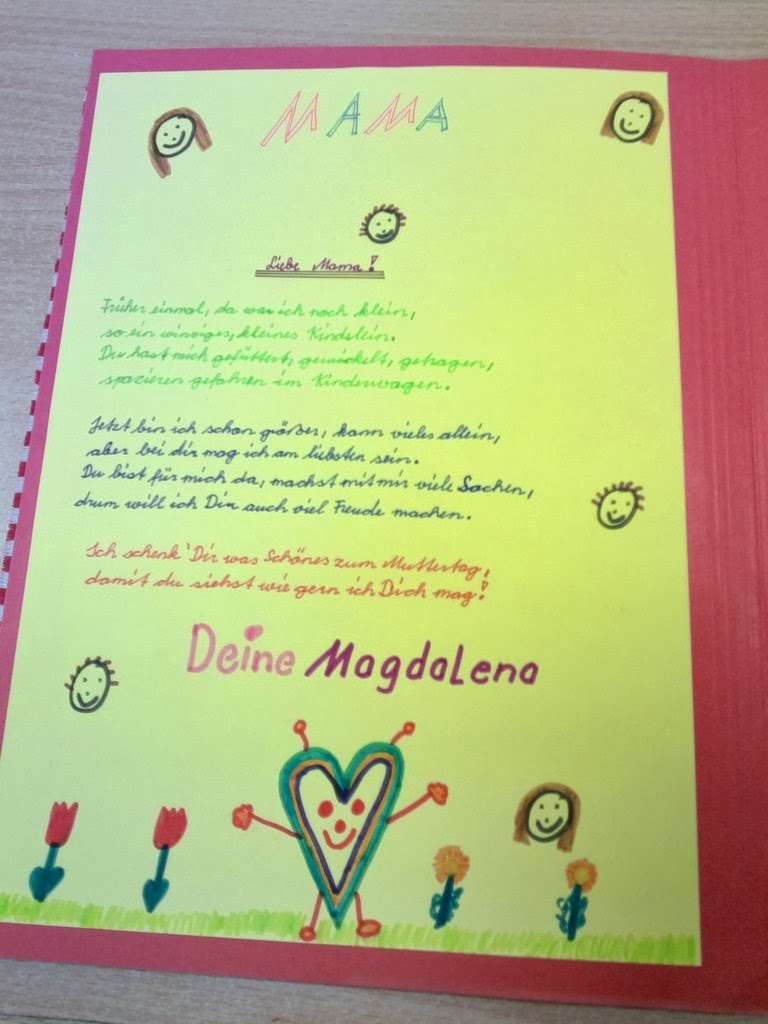 MAMA
Liebe Mama!
Früher einmal, da war ich noch klein,
so ein winziges, kleines Kindelein.
Du hast mich gefüttert, gewickelt, getragen,
spazieren gefahren im Kinderwagen.
Jetzt bin ich schon größer, kann vieles allein,
aber bei dir mag ich am liebsten sein.
Du bist für mich da, machst mit mir viele Sachen,
drum will ich Dir auch viel Freude machen.
Ich schenk' Dir was Schönes zum Muttertag,
damit du siehst wie gern ich Dich mag!
Deine Magdalena